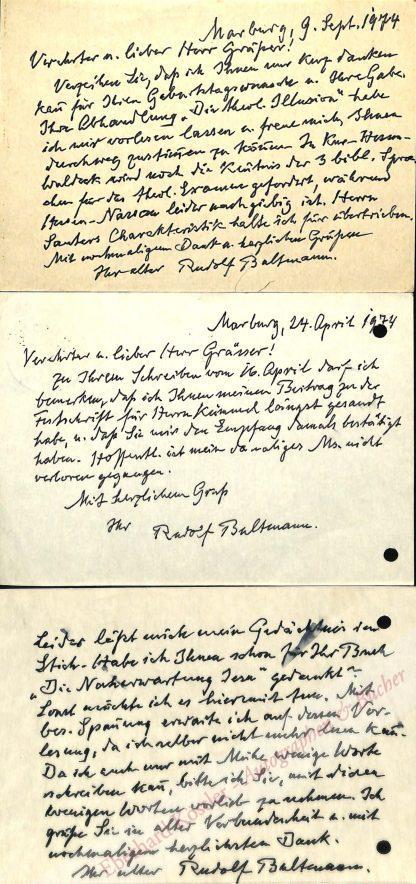 Marburg, 9. Sept. 1974
Verehrter u. lieber Herr Gräßer!
Verzeihen Sie, daß ich Ihnen nur kurz danken
kan für Ihren Geburtstagswunsch u. Ihre Gabe.
Ihre Abhandlung „Die theol. Illusion" habe
ich mir vorlesen lassen u. freue mich, Ihnen
durchweg zustimmen zu können. In Kur-Hessen-
Waldeck wird noch die Kentnis der 3 bibl. Spra-
chen für das theol. Examen gefordert, während
Hessen-Nassau leider nachgiebig ist. Herrn
Sauters Charakteristik halte ich für übertrieben.
Mit nochmaligem Dank u. herzlichen Grüßen
Ihr alter Rudolf Bultmann.
Marburg, 24. April 1974
Verehrter u. lieber Herr Grässer!
Zu Ihrem Schreiben vom 16. April darf ich
bemerken, daß ich Ihnen meinen Beitrag zu der
Festschrift für Herrn Kümmel längst gesandt
habe, u. daß Sie mir den Empfang damals bestätigt
haben. Hoffentl. ist mein damaliges Ms. nicht
verloren gegangen.
Mit herzlichem Gruß
Ihr Rudolf Bultmann.
Leider läßt mich mein Gedächtnis im
Stich. Habe ich Ihnen schon für Ihr Buch
„Die Naherwartung Jesu" gedankt?
Sonst möchte ich es hiermit tun. Mit
bes. Spanung erwarte ich auf deren Vor-
lesung, da ich selber nicht mehr lesen kan.
Da ich auch nur mit Mühe wenige Worte
schreiben kan, bitte ich Sie, mit diesen
wenigen Worten vorlieb zu nehmen. Ich
grüße Sie in alter Verbundenheit u. mit
nochmaligem herzlichsten Dank.
Ihr alter Rudolf Bultmann.